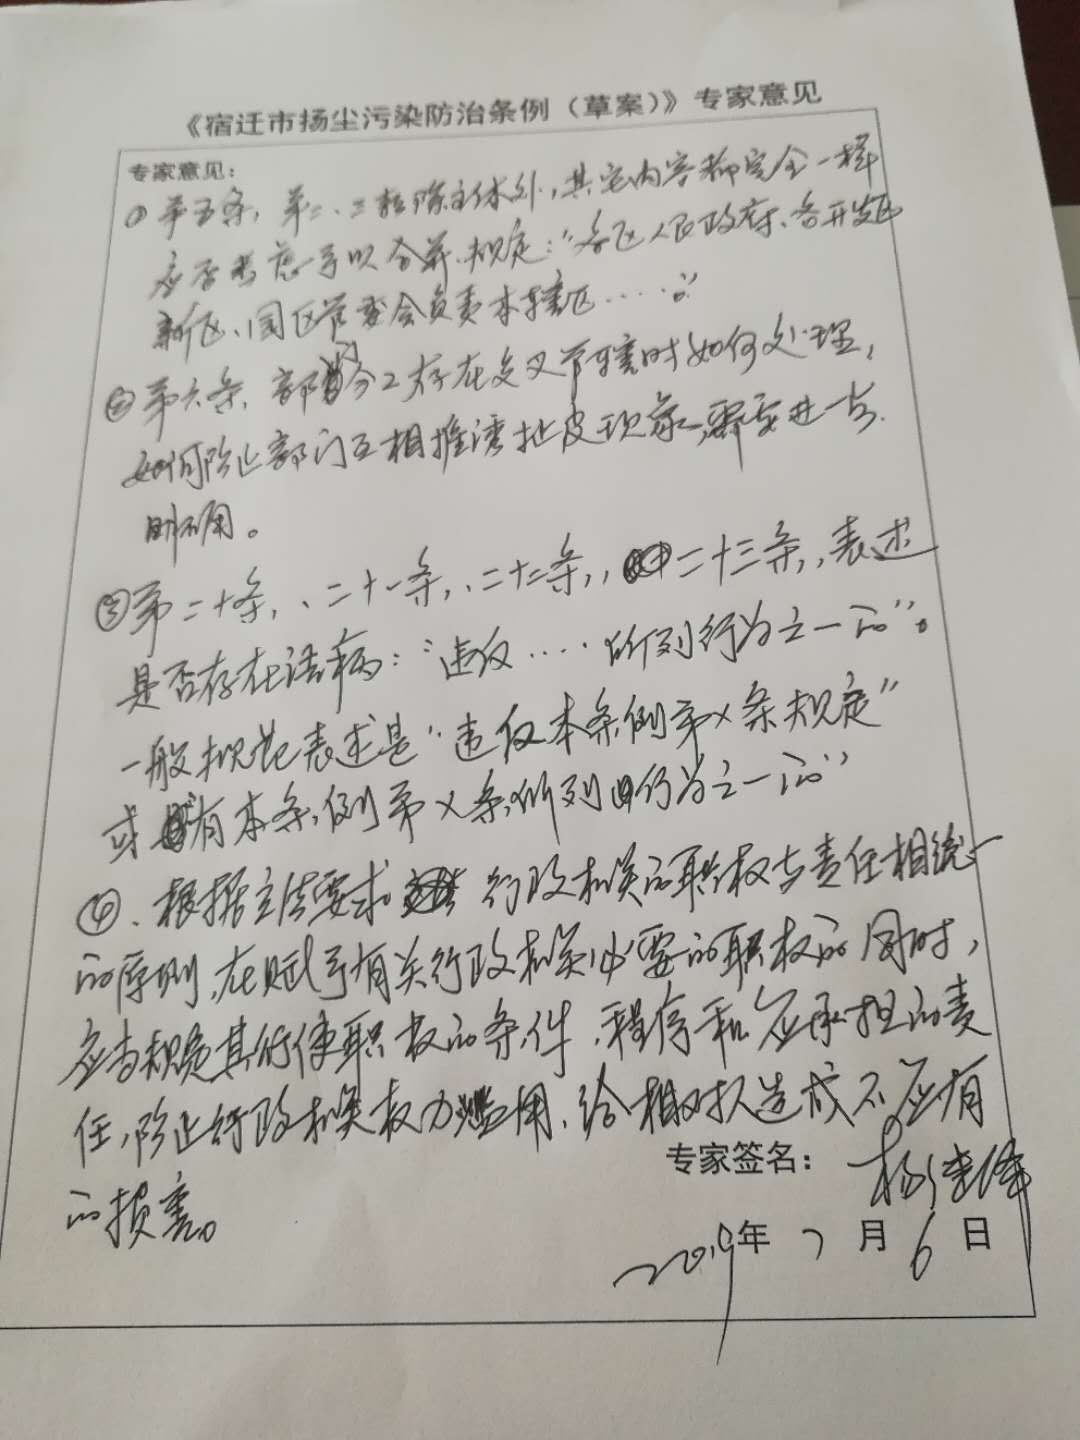 《宿迁市扬尘污染防治条例（草案）》专家意见
专家意见：
① 第五条，第二、三款除主体外，其它内容都完全一样
应否考虑予以合并，规定：“各区人民政府、各开发区
新区、园区管委会负责本辖区……。”
② 第六条，部分工存在交叉管辖时如何处理，
如何防止部门互相推诿扯皮现象，需要进一步
明确。
③ 第二十条，、二十一条，、二十二条，，二十三条，，表述
是否存在语病：“违反……所列行为之一的”。
一般规范表述是“违反本条例第×条规定”
或“有本条例第×条所列行为之一的”
④、根据立法要求 行政机关的职权与责任相统一
的原则，在赋予有关行政机关必要的职权的同时，
应当规范其行使职权的条件、程序和应承担的责
任，防止行政机关权力滥用、给相对人造成不应有
的损害。
专家签名：杨
2019年 7 月 6 日